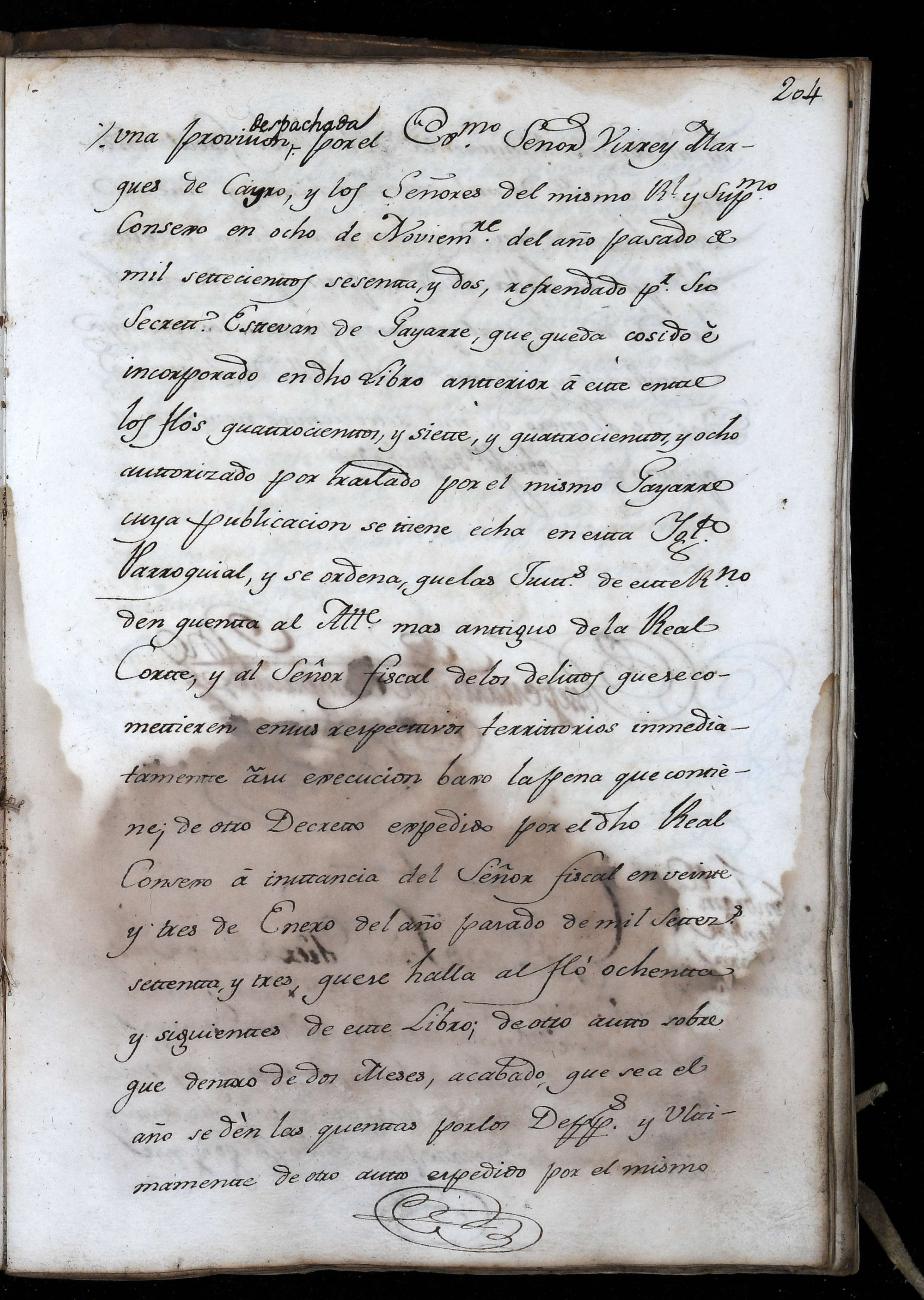 204
despachada
una provision, por el Exmo. Señor Virrey Mar-
ques de Cayro, y los Señores del mismo Rl. y Supmo.
Consexo en ocho de Noviemre. del año pasado de
mil settecienttos sesentta, y dos, refrendado pr. Su
Secrettº. Estevan de Gayarre, que queda cosido è
incorporado en dho Libro antterior â estte enttre
los flòs quattrocienttos, y siette, y quattrocienttos, y ocho
auttorizado por traslado por el mismo Gayarre
cuya publicacion se ttiene echa en estta Yglª.
Parroquial, y se ordena, que las Justts. de estte Rno
den quentta al Altte. mas anttiguo de la Real
Cortte, y al Señor fiscal de los delittos que se co-
mettieren en sus respecttivos territtorios inmedia-
tamentte â su execucion baxo la pena que conttie-
ne; de otro Decretto expedido por el dho Real
Consexo â insttancia del Señor fiscal en veintte
y tres de Enero del año pasado de mil Settezs.
settentta, y tres, que se halla al flò ochentta
y siguienttes de estte Libro; de otro àutto sobre
que denttro de dos Meses, acabado, que sea el
año se dèn las quenttas por los Depp.s y Ultti-
mamentte de otro autto expedido por el mismo